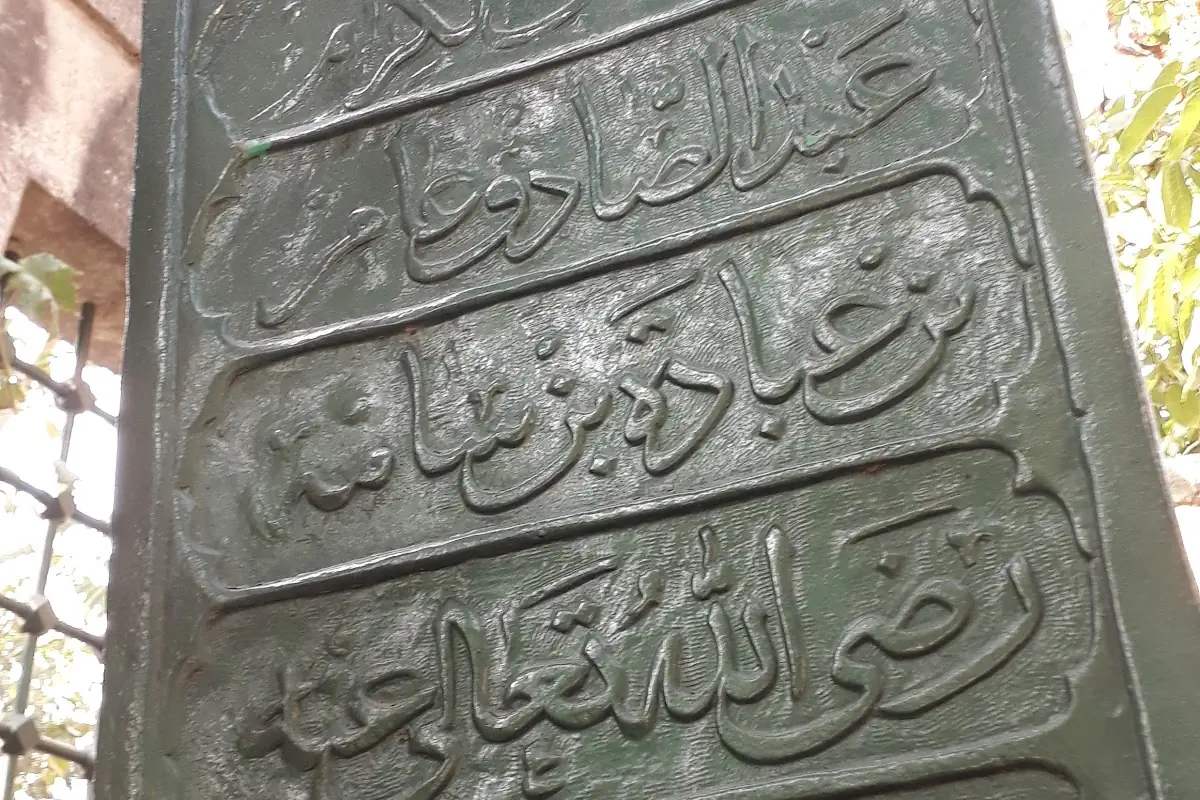 عبد الصادق عامر
بن عبادة بن سامة
رضى الله تعالى عنه